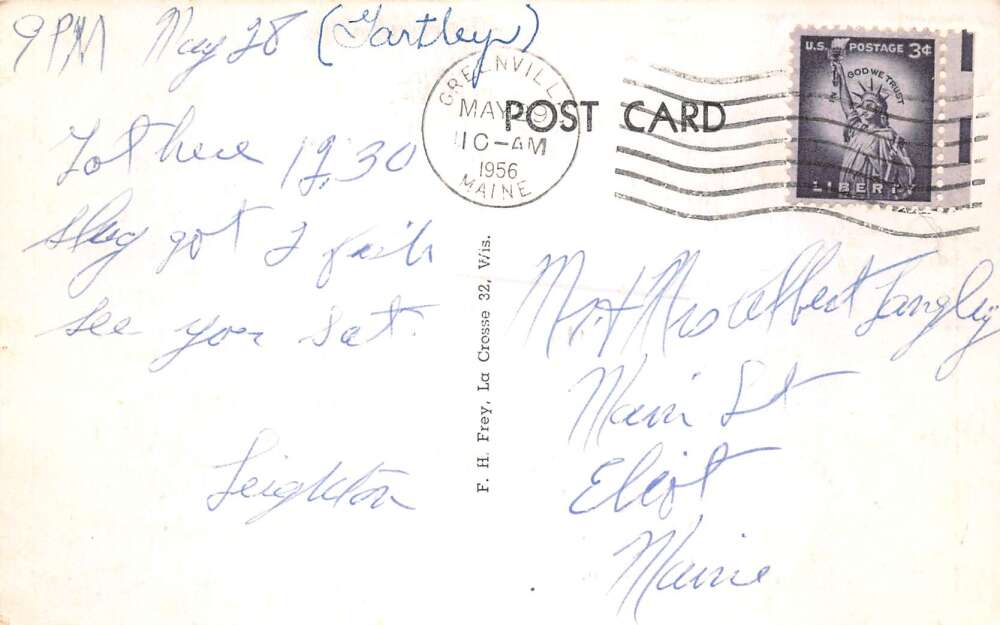 9 PM May 28 (Gartley)
Got here 12,30
got 2 fish
See you Sat.
Leighton
GREENVILLE
MAY 29
11 0-AM
1956
MAINE
POST CARD
U.S. POSTAGE 3¢
IN GOD WE TRUST
LIBERTY
F. H. Frey, La Crosse 32, Wis.
Mr. & Mrs Albert Langley
Main St
Eliot
Maine